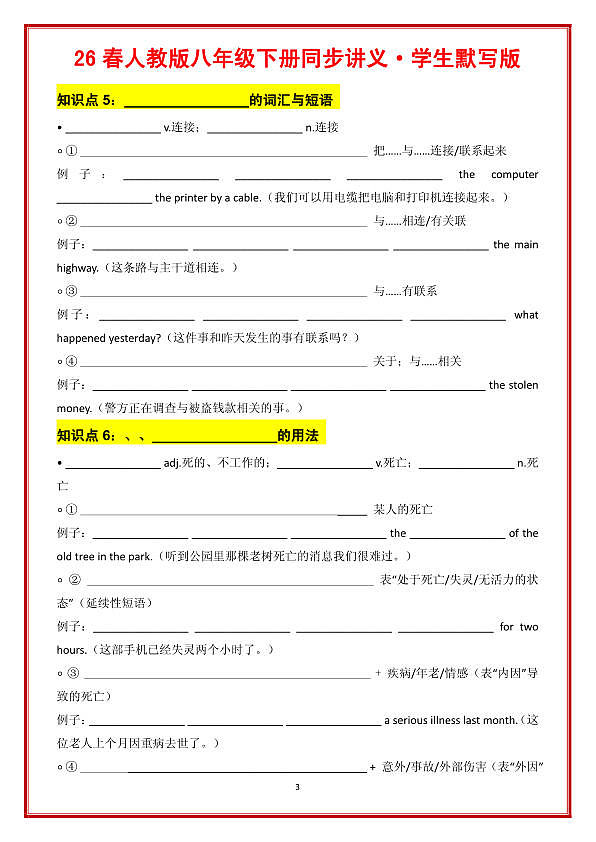 26 春人教版八年级下册同步讲义·学生默写版
知识点 5：________________的词汇与短语
• ________________ v.连接；________________ n.连接
○ ① ________________________________________________ 把……与……连接/联系起来
例子：________________ ________________ ________________ the computer
________________ the printer by a cable.（我们可以用电缆把电脑和打印机连接起来。）
○ ② ________________________________________________ 与……相连/有关联
例子：________________ ________________ ________________ ________________ the main
highway.（这条路与主干道相连。）
○ ③ ________________________________________________ 与……有联系
例子：________________ ________________ ________________ ________________ what
happened yesterday?（这件事和昨天发生的事有联系吗？）
○ ④ ________________________________________________ 关于；与……相关
例子：________________ ________________ ________________ ________________ the stolen
money.（警方正在调查与被盗钱款相关的事。）
知识点 6：、、________________的用法
• ________________ adj.死的、不工作的；________________ v.死亡；________________ n.死
亡
○ ① ________________________________________________ 某人的死亡
例子：________________ ________________ ________________ the ________________ of the
old tree in the park.（听到公园里那棵老树死亡的消息我们很难过。）
○ ② ________________________________________________ 表“处于死亡/失灵/无活力的状
态”（延续性短语）
例子：________________ ________________ ________________ ________________ for two
hours.（这部手机已经失灵两个小时了。）
○ ③ ________________________________________________ + 疾病/年老/情感（表“内因”导
致的死亡）
例子：________________ ________________ ________________ a serious illness last month.（这
位老人上个月因重病去世了。）
○ ④ ________________________________________________ + 意外/事故/外部伤害（表“外因”
3